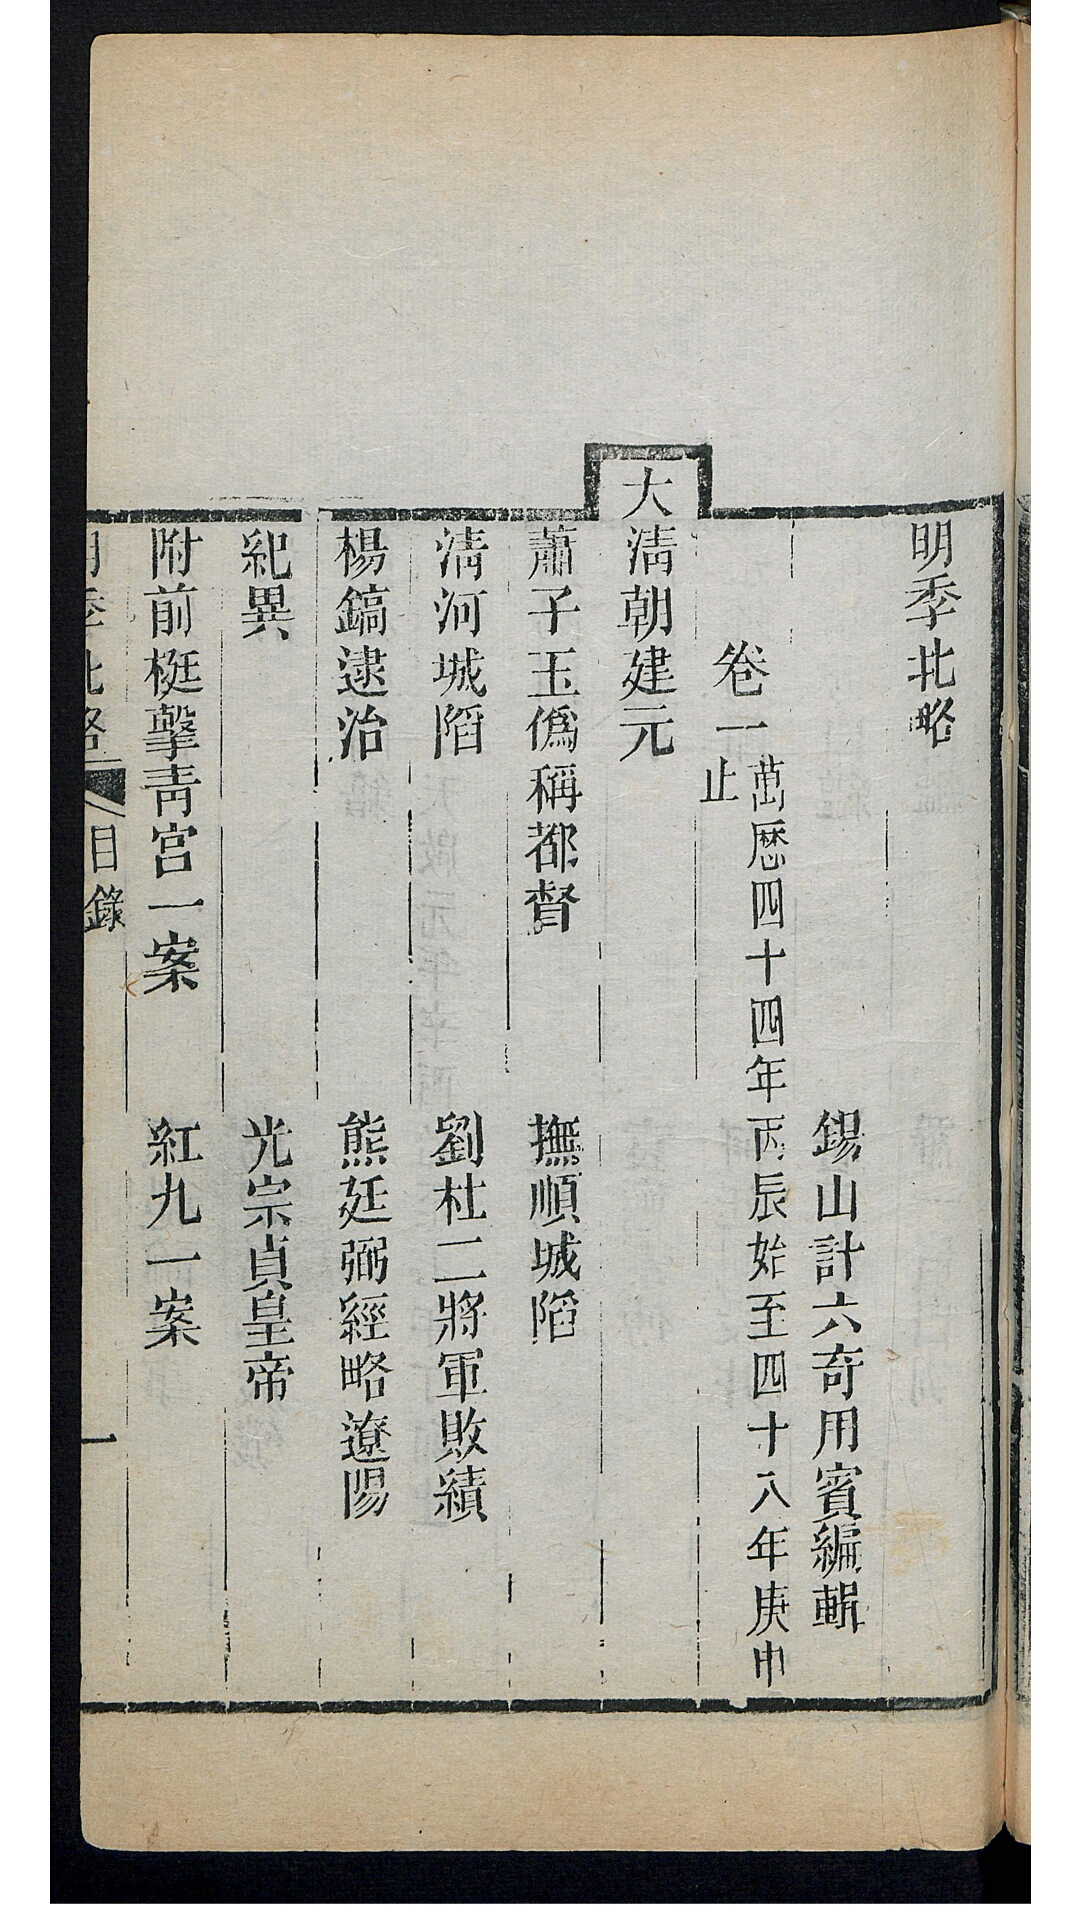 明季北略
錫山計六奇用賓編輯
卷一萬厯四十四年丙辰始至四十八年庚申止
大淸朝建元
蕭子玉僞稱都督 撫順城䧟
淸河城䧟 劉杜二將軍敗績
楊鎬逮治 熊廷弼經略遼陽
紀異 光宗貞皇帝
附前梃擊靑宮一案 紅九一案
明季北略 目錄 一